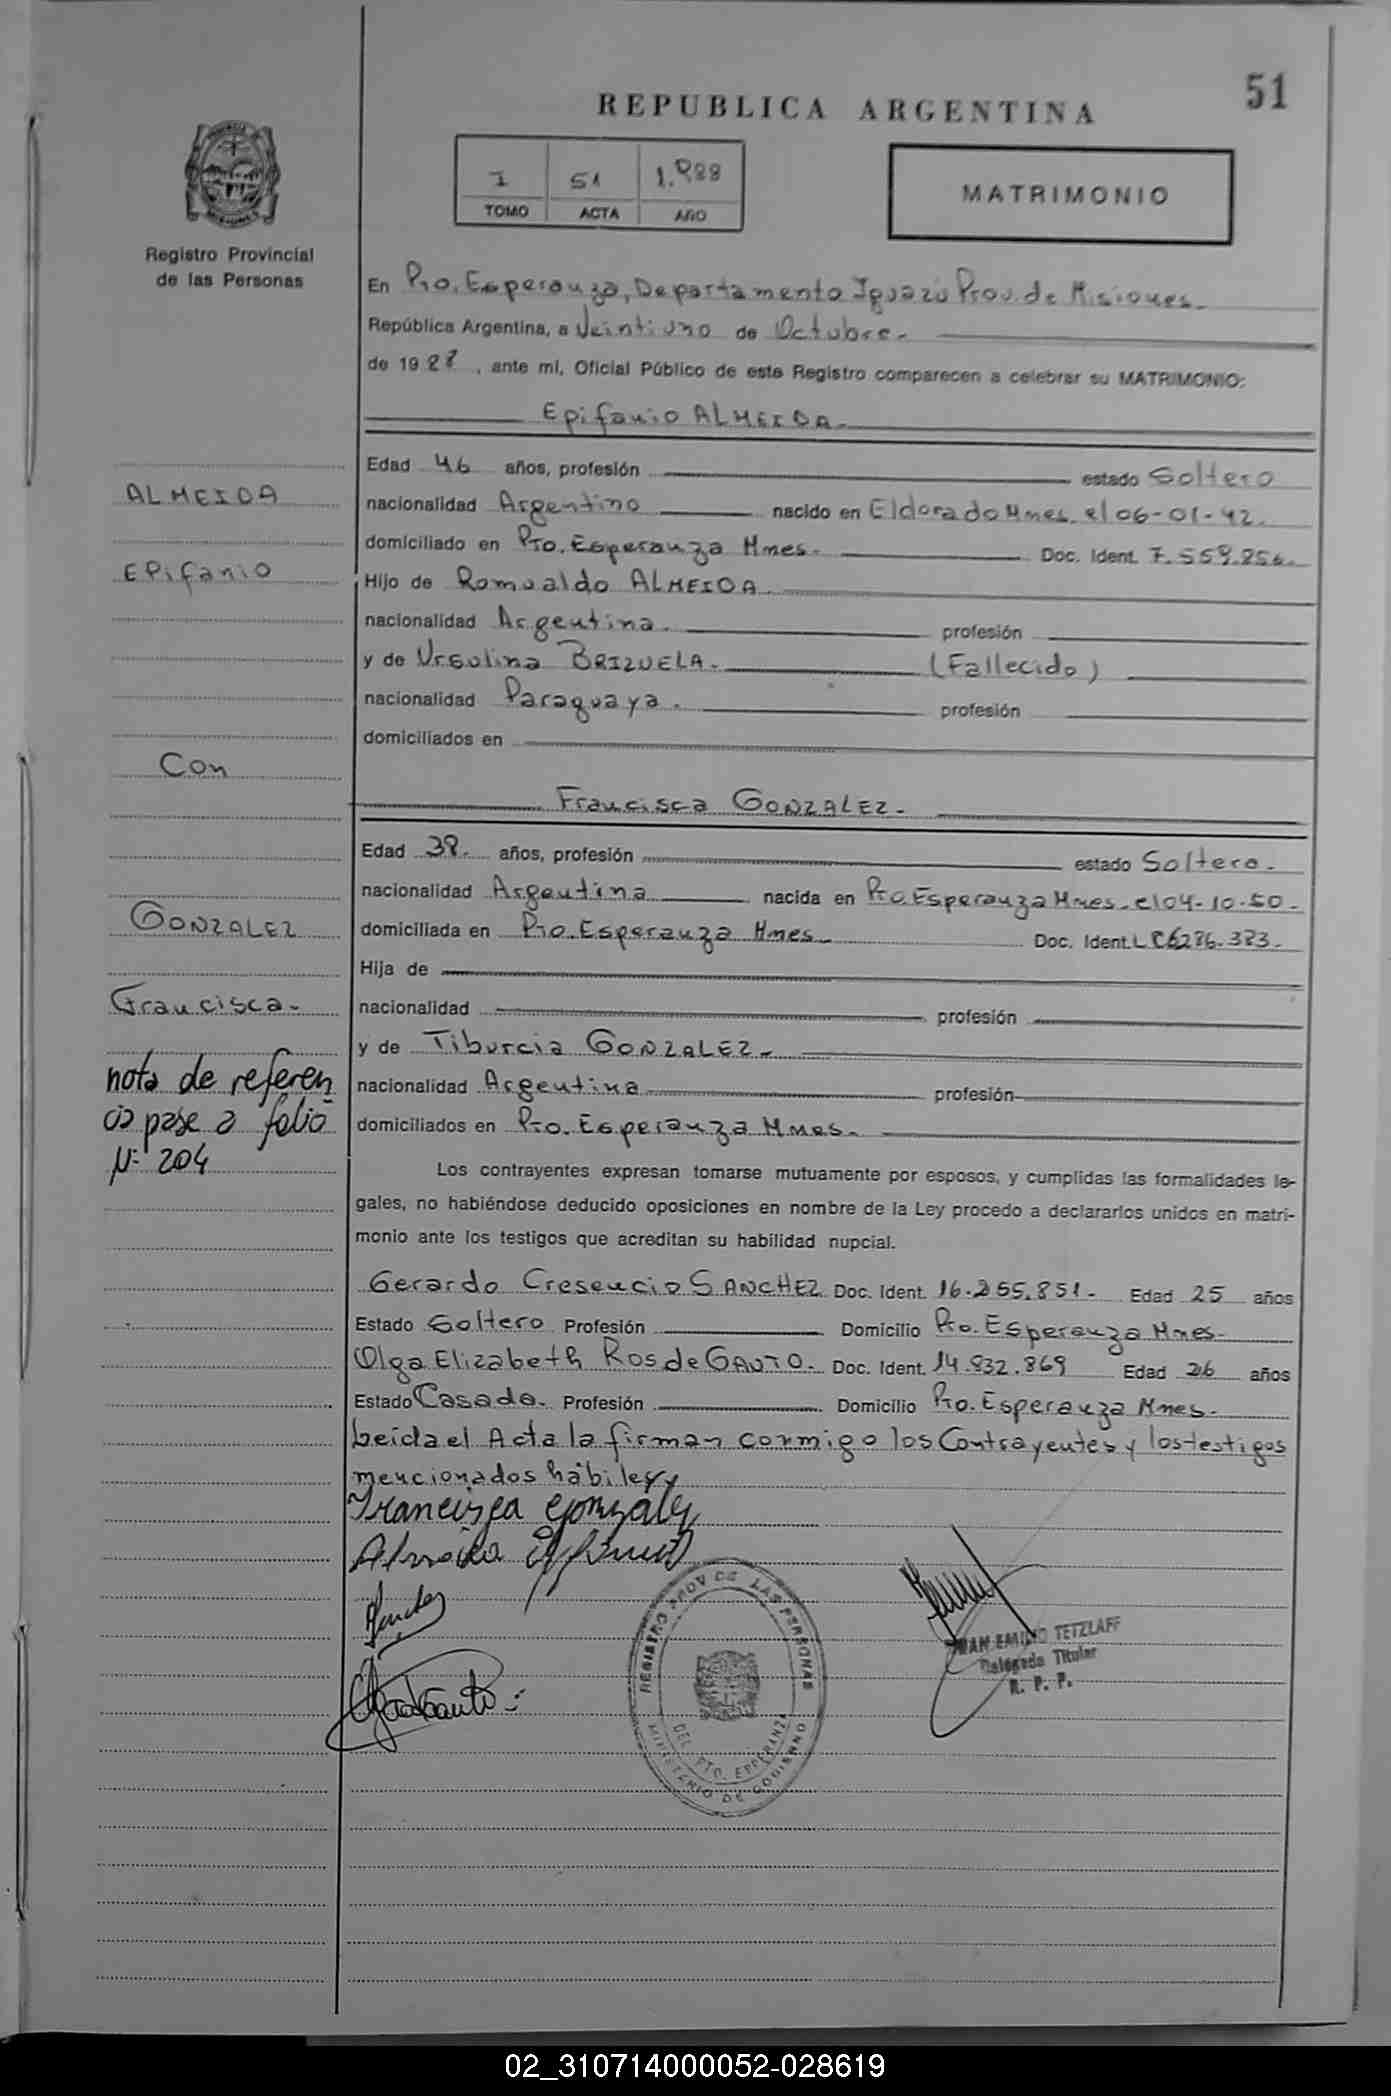 51
REPUBLICA ARGENTINA
I 51 1.988
TOMO ACTA AÑO
MATRIMONIO
Registro Provincial
de las Personas
En Pto. Esperanza, Departamento Iguazú Prov. de Misiones.
República Argentina, a Veintiuno de Octubre.
de 1988, ante mi, Oficial Público de este Registro comparecen a celebrar su MATRIMONIO:
Epifanio ALMEIDA.
Edad 46 años, profesión estado Soltero
nacionalidad Argentino nacido en Eldorado Mnes. el 06-01-42.
domiciliado en Pto. Esperanza Mnes. Doc. Ident. 7.559.856.
Hijo de Romualdo ALMEIDA.
nacionalidad Argentina. profesión
y de Ursulina BRIZUELA. (Fallecido)
nacionalidad Paraguaya. profesión
domiciliados en
Francisca GONZALEZ.
Edad 38. años, profesión estado Soltera.
nacionalidad Argentina nacida en Pto. Esperanza Mnes. el 04-10-50.
domiciliada en Pto. Esperanza Mnes. Doc. Ident. LC 6286.383.
Hija de
nacionalidad profesión
y de Tiburcia GONZALEZ.
nacionalidad Argentina profesión
domiciliados en Pto. Esperanza Mnes.
ALMEIDA
EPifanio
Con
GONZALEZ
Francisca.
nota de referen
cia pase a folio
Nº 204
Los contrayentes expresan tomarse mutuamente por esposos, y cumplidas las formalidades le-
gales, no habiéndose deducido oposiciones en nombre de la Ley procedo a declararlos unidos en matri-
monio ante los testigos que acreditan su habilidad nupcial.
Gerardo Cresencio SANCHEZ Doc. Ident. 16.255.851. Edad 25 años
Estado Soltero Profesión Domicilio Pto. Esperanza Mnes.
Olga Elizabeth Ros de GAUTO. Doc. Ident. 14.832.869 Edad 26 años
Estado Casada. Profesión Domicilio Pto. Esperanza Mnes.
Leida el Acta la firman conmigo los Contrayentes y los testigos
mencionados hábiles
Francisca Gonzalez
Almeida Epifanio
REGISTRO PROV DE LAS PERSONAS
DEL PTO. ESPERANZA
MINISTERIO DE GOBIERNO
JUAN EMILIO TETZLAFF
Delegado Titular
R. P. P.
02_310714000052-028619